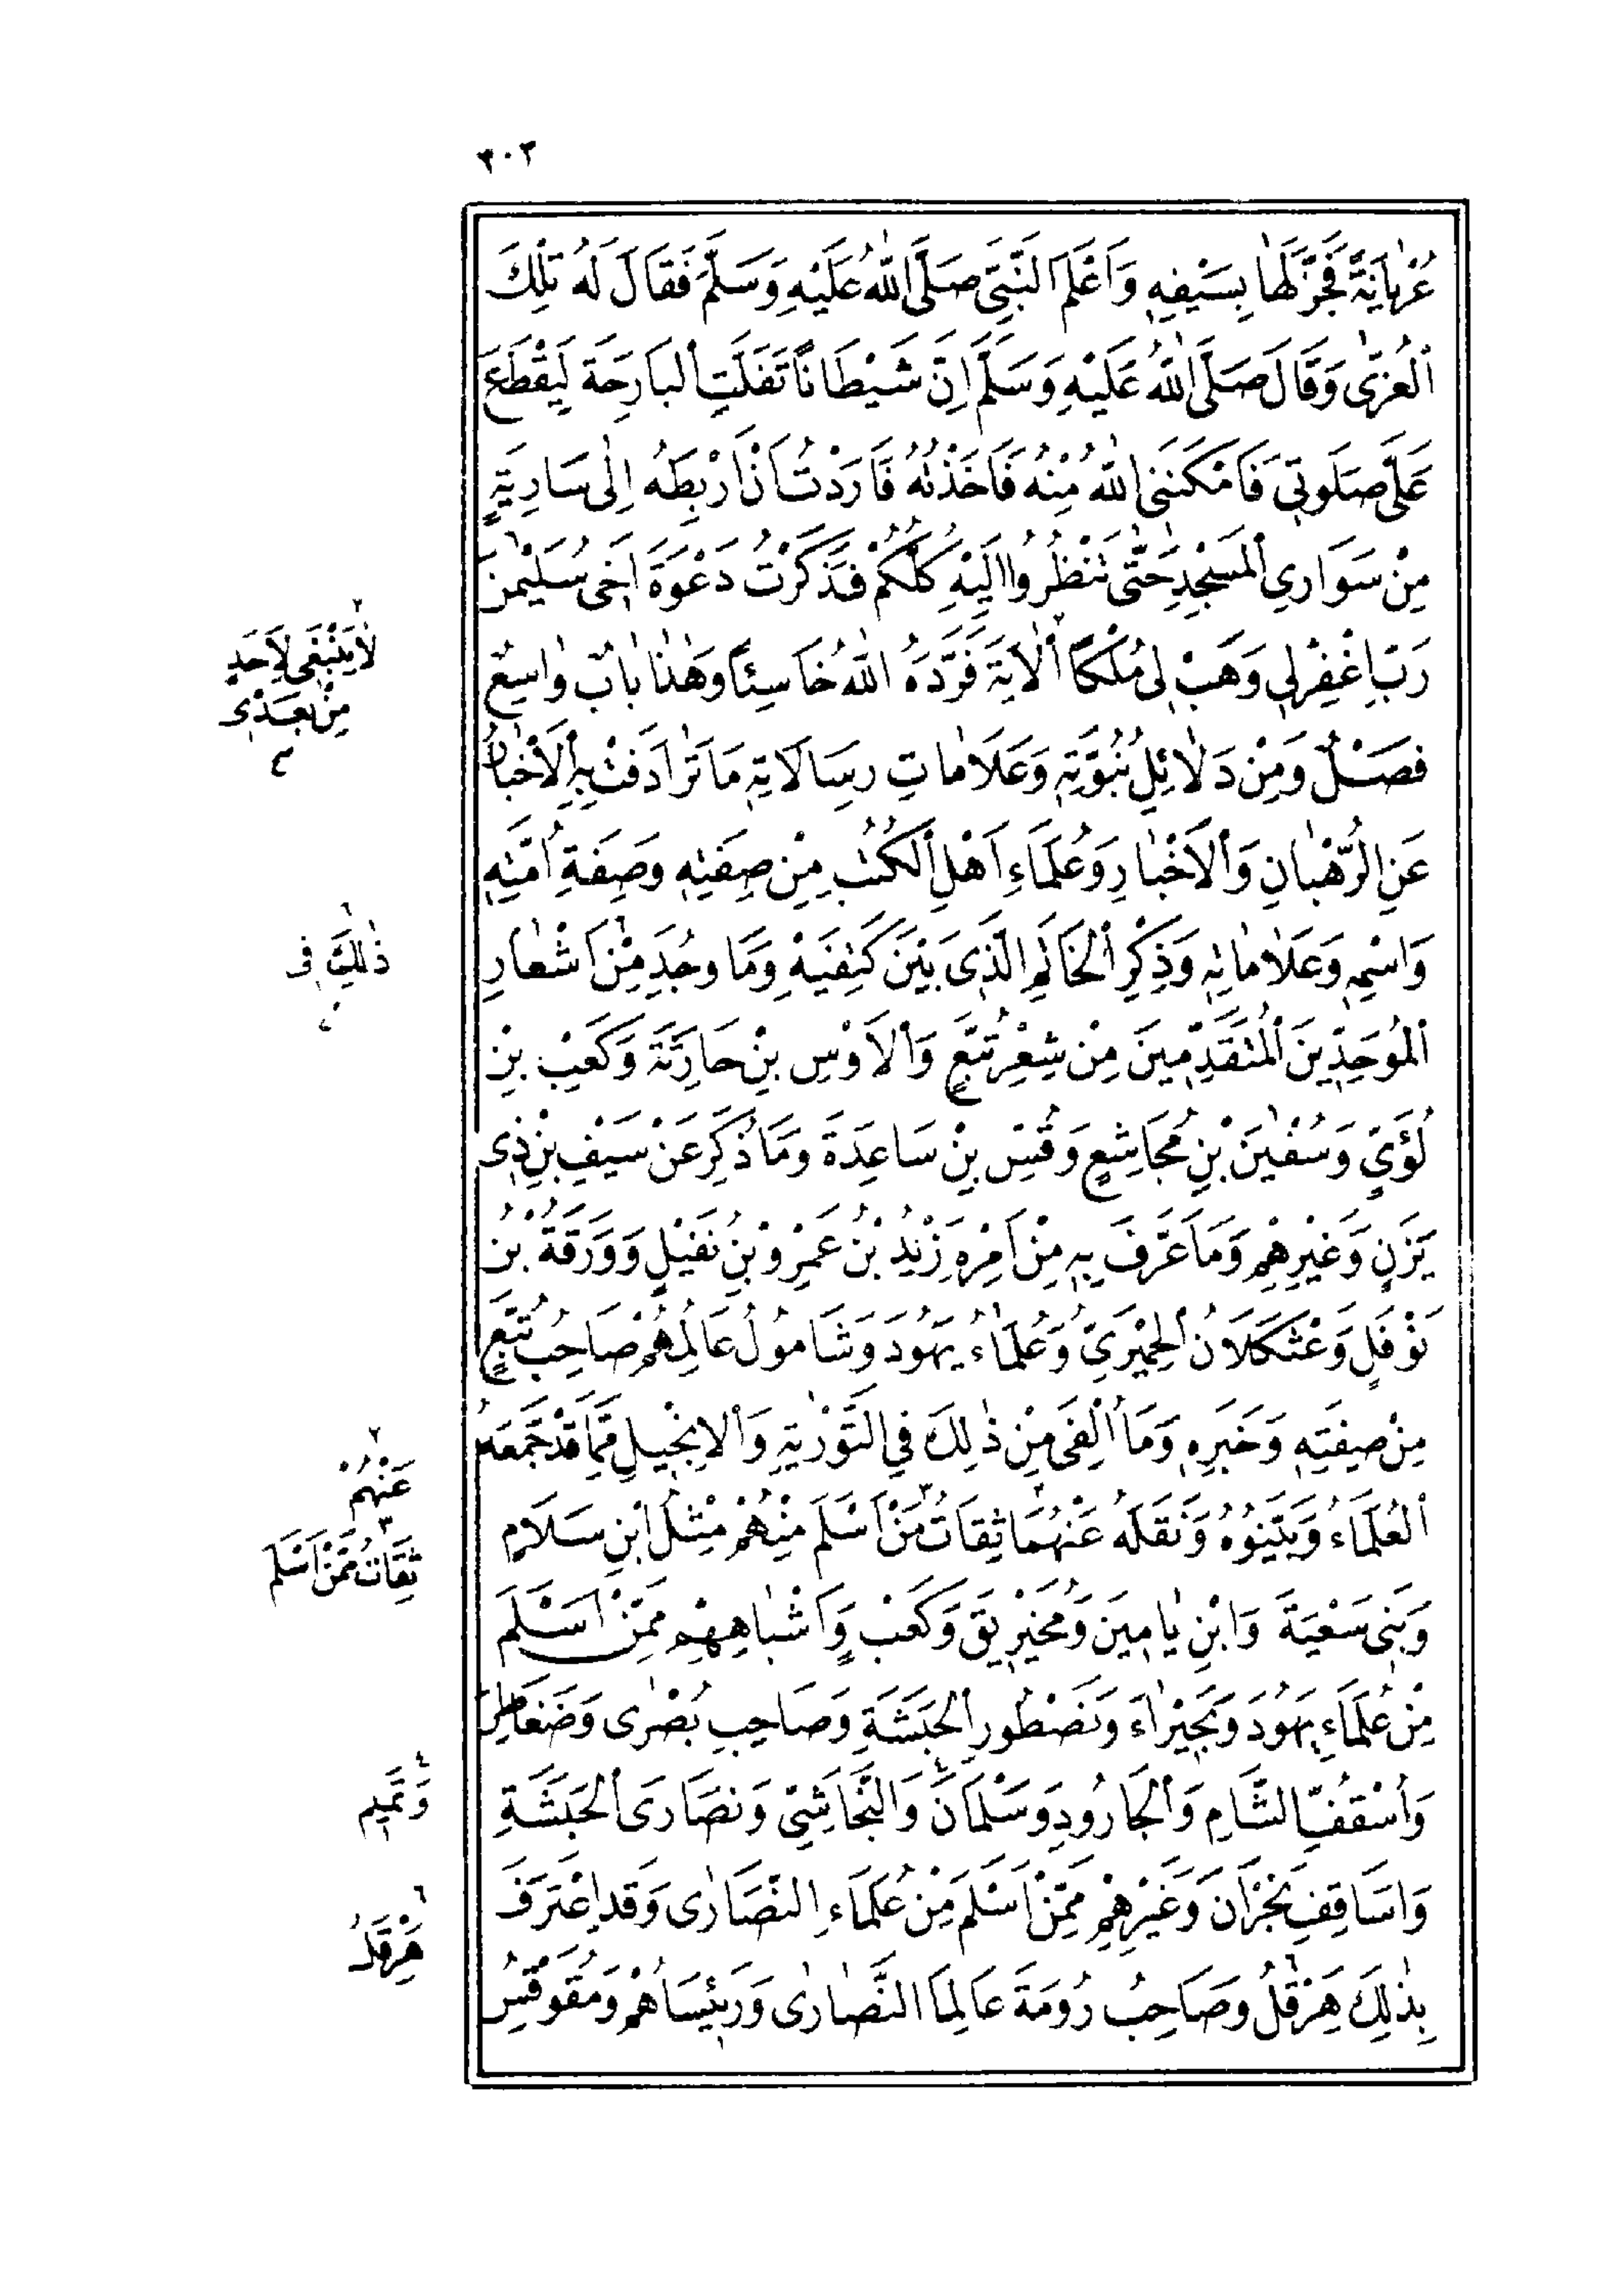 ٣٠٢
عُرْيَانَةً فَجَزَّلَهَا بِسَيْفِهِ وَاَعْلَمَ النَّبِىَّ صَلَّى اللهُ عَلَيْهِ وَسَلَّمَ فَقَالَ لَهُ تِلْكَ
الْعُزّٰى وَقَالَ صَلَّى اللهُ عَلَيْهِ وَسَلَّمَ اِنَّ شَيْطَانًا تَفَلَّتَ الْبَارِحَةَ لِيَقْطَعَ
عَلَىَّ صَلَوتِى فَاَمْكَنَنِى اللهُ مِنْهُ فَاَخَذْتُهُ فَاَرَدْتُ اَنْ اَرْبِطَهُ اِلٰى سَارِيَةٍ
مِنْ سَوَارِي الْمَسْجِدِ حَتّٰى تَنْظُرُوا اِلَيْهِ كُلُّكُمْ فَذَكَرْتُ دَعْوَةَ اَخِى سُلَيْمٰنَ
رَبِّ اغْفِرْ لِى وَهَبْ لِى مُلْكًا الْاٰيَةَ فَرَدَّهُ اللهُ خَاسِئًا وَهٰذَا بَابٌ وَاسِعٌ
لَا يَنْبَغِى لِاَحَدٍ
مِنْ بَعْدِى
فَصْلٌ وَمِنْ دَلَائِلِ نُبُوَّتِهِ وَعَلَامَاتِ رِسَالَاتِهِ مَا تَرَادَفَتْ بِهِ الْاَخْبَارُ
عَنِ الرُّهْبَانِ وَالْاَحْبَارِ وَعُلَمَاءِ اَهْلِ الْكُتُبِ مِنْ صِفَتِهِ وَصِفَةِ اُمَّتِهِ
وَاسْمِهِ وَعَلَامَاتِهِ وَذِكْرِ الْخَاتَمِ الَّذِى بَيْنَ كَتِفَيْهِ وَمَا وُجِدَ مِنْ اَشْعَارِ
ذٰلِكَ فِى
الْمُوَحِّدِينَ الْمُتَقَدِّمِينَ مِنْ شِعْرِ تُبَّعٍ وَالْاَوْسِ بْنِ حَارِثَةَ وَكَعْبِ بْنِ
لُؤَيٍّ وَسُفْيٰنَ بْنِ مُجَاشِعٍ وَقُسِّ بْنِ سَاعِدَةَ وَمَا ذُكِرَ عَنْ سَيْفِ بْنِ ذِى
يَزَنٍ وَغَيْرِهِمْ وَمَا عَرَّفَ بِهِ مِنْ اَمْرِهِ زَيْدُ بْنُ عَمْرِو بْنِ نُفَيْلٍ وَوَرَقَةُ بْنُ
نَوْفَلٍ وَعَثْكَلَانُ الْحِمْيَرِيُّ وَعُلَمَاءُ يَهُودَ وَشَامُولُ عَالِمُهُمْ صَاحِبُ تُبَّعٍ
مِنْ صِفَتِهِ وَخَبَرِهِ وَمَا اُلْفِىَ مِنْ ذٰلِكَ فِي التَّوْرٰيةِ وَالْاِنْجِيلِ مِمَّا قَدْ جَمَعَهُ
الْعُلَمَاءُ وَبَيَّنُوهُ وَنَقَلَهُ عَنْهُمَا ثِقَاتُ مَنْ اَسْلَمَ مِنْهُمْ مِثْلُ ابْنِ سَلَامٍ
عَنْهُمْ
ثِقَاتٌ مِمَّنْ اَسْلَمَ
وَبَنِى سَعْيَةَ وَابْنِ يَامِينَ وَمُخَيْرِيقَ وَكَعْبٍ وَاَشْبَاهِهِمْ مِمَّنْ اَسْلَمَ
مِنْ عُلَمَاءِ يَهُودَ وَبَحِيرَاءَ وَنَصْطُورِ الْحَبَشَةِ وَصَاحِبِ بُصْرٰى وَضَغَاطِرَ
وَاُسْقُفِّ الشَّامِ وَالْجَارُودِ وَسَلْمَانَ وَالنَّجَاشِيِّ وَنَصَارَى الْحَبَشَةِ
وَتَمِيمٍ
وَاَسَاقِفِ نَجْرَانَ وَغَيْرِهِمْ مِمَّنْ اَسْلَمَ مِنْ عُلَمَاءِ النَّصَارٰى وَقَدِ اعْتَرَفَ
بِذٰلِكَ هِرَقْلُ وَصَاحِبُ رُومَةَ عَالِمَا النَّصَارٰى وَرَئِيسَاهُمْ وَمُقَوْقِسُ
هِرَقْلُ